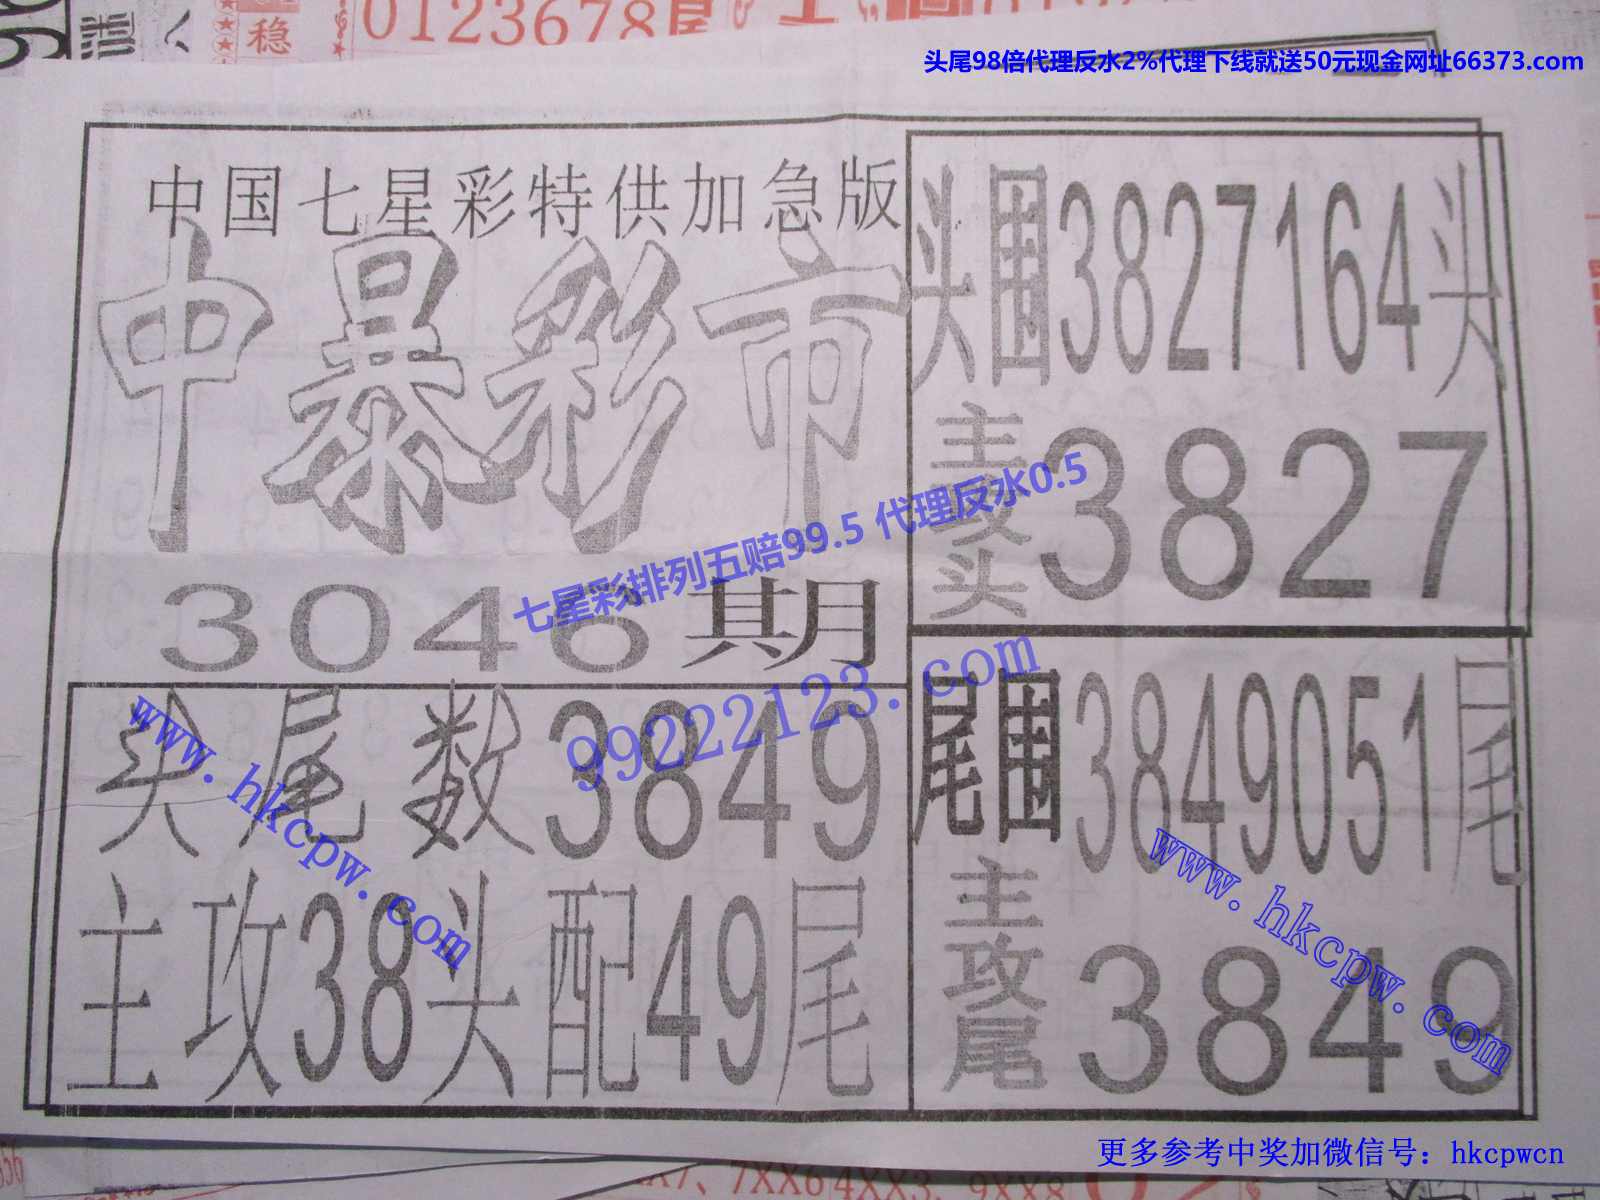 稳
0123678尾
头尾98倍代理反水2%代理下线就送50元现金网址66373.com
中国七星彩特供加急版
中暴彩市
3046期
头围3827164头
主攻头
3827
七星彩排列五赔99.5 代理反水0.5
99222123.com
头尾数3849
主攻38头配49尾
www.hkcpw.com
尾围3849051尾
主攻尾
3849
www.hkcpw.com
更多参考中奖加微信号：hkcpwcn
7XX6 4XX3、9XX8